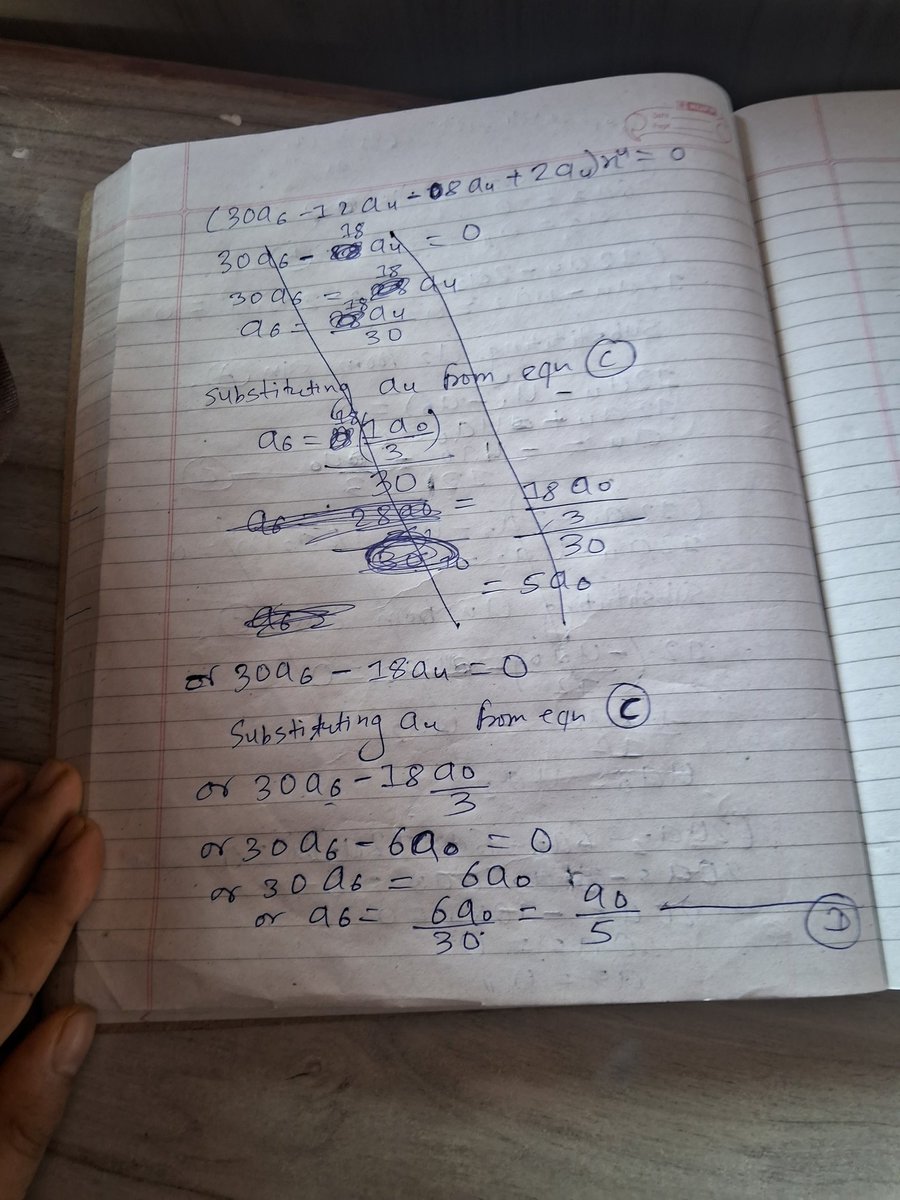 (30a6 - 12a4 - 08a4 + 2a4)x⁴ = 0
30a6 - 18a4 = 0
30a6 = 18a4
a6 = 18a4/30
Substituting a4 from eqn (C)
a6 = 18(1a0/3)/30
= 18a0/3/30
= 5a0
or 30a6 - 18a4 = 0
Substituting a4 from eqn (C)
or 30a6 - 18a0/3
or 30a6 - 6a0 = 0
or 30a6 = 6a0
or a6 = 6a0/30 = a0/5 — (D)